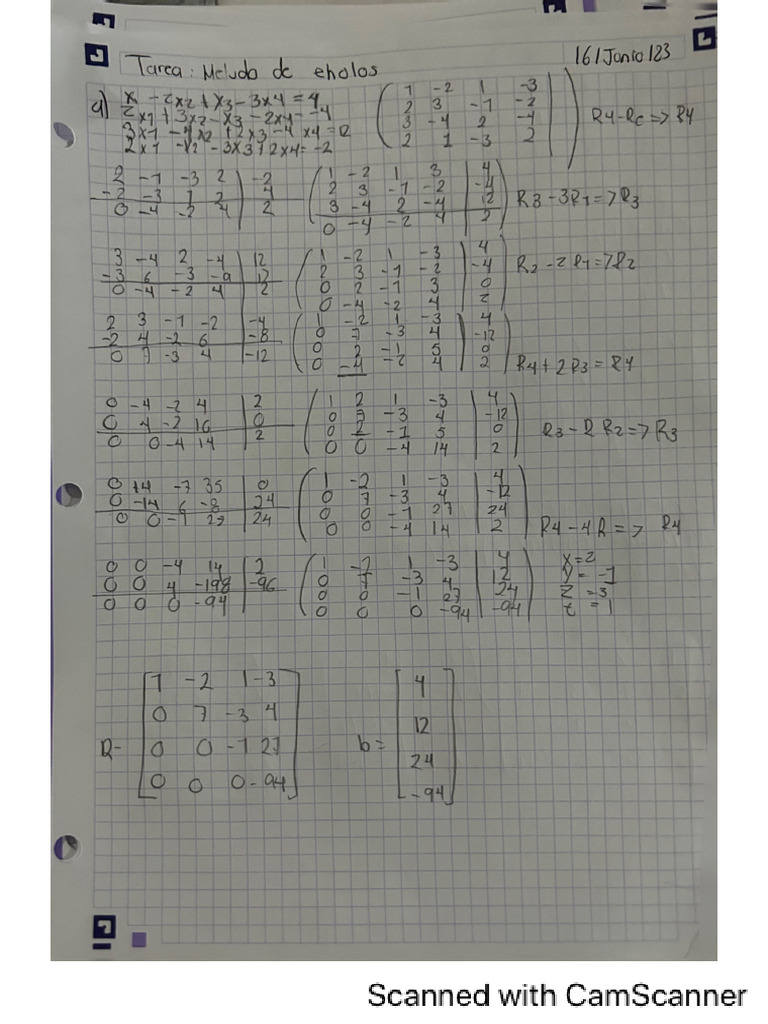 Tarea: Metodo de eholos 16/Junio/23
a) x - 2x2 + x3 - 3x4 = 4
2x1 + 3x2 - x3 - 2x4 = -4
3x1 - 4x2 + 2x3 - 4x4 = 12
2x1 - x2 - 3x3 + 2x4 = -2
1 -2 1 -3
2 3 -1 -2
3 -4 2 -4
2 1 -3 2
R4-R2 => R4
2 -1 -3 2 | -2
-2 -3 1 2 | 4
0 -4 -2 4 | 2
1 -2 1 3 | 4
2 3 -1 -2 | -4
3 -4 2 -4 | 12
0 -4 -2 4 | 2
R3-3R1=>R3
3 -4 2 -4 | 12
-3 6 -3 -9 | 12
0 -4 -2 4 | 2
1 -2 1 -3 | 4
2 3 -1 -2 | -4
0 2 -1 3 | 0
0 -4 -2 4 | 2
R2-2R1=>R2
2 3 -1 -2 | -4
-2 4 -2 6 | -8
0 7 -3 4 | -12
1 -2 1 -3 | 4
0 7 -3 4 | -12
0 2 -1 5 | 0
0 -4 -2 4 | 2
R4+2R3=R4
0 -4 -2 4 | 2
0 4 -2 10 | 0
0 0 -4 14 | 2
1 2 1 -3 | 4
0 7 -3 4 | -12
0 2 -1 5 | 0
0 0 -4 14 | 2
R3-2R2=>R3
0 14 -7 35 | 0
0 -14 6 -8 | 24
0 0 -1 27 | 24
1 -2 1 -3 | 4
0 7 -3 4 | -12
0 0 -1 27 | 24
0 0 -4 14 | 2
R4-4R=> R4
0 0 -4 14 | 2
0 0 4 -198 | -96
0 0 0 -94 |
1 -2 1 -3 | 4
0 7 -3 4 | 12
0 0 -1 27 | 24
0 0 0 -94 | -94
x=2
y= -1
z =3
t = 1
R-
1 -2 1 -3
0 7 -3 4
0 0 -1 27
0 0 0 -94
b=
4
12
24
-94
Scanned with CamScanner